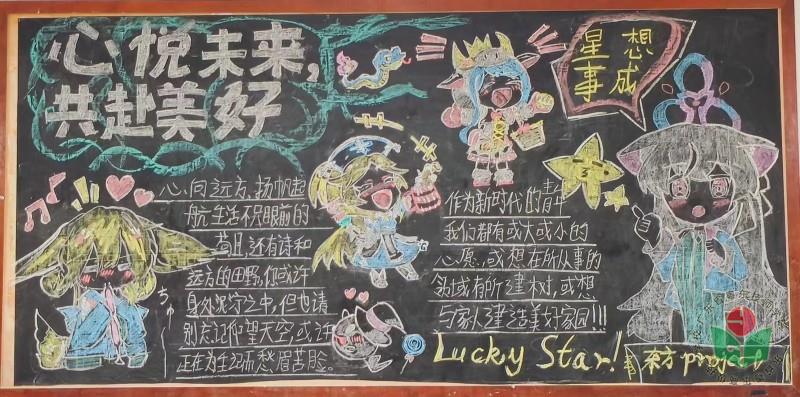 心悦未来,
共赴美好
星 想
事 成
心向远方,扬帆起
航,生活不只眼前的
苟且,还有诗和
远方的田野,你或许
身处泥泞之中,但也请
别忘记仰望天空,或许
正在为生活而愁眉苦脸。
作为新时代的青年
我们都有或大或小的
心愿,或想在所从事的
领域有所建树,或想
与家人建造美好家园!!!
Lucky Star!
东方project
ちゅ